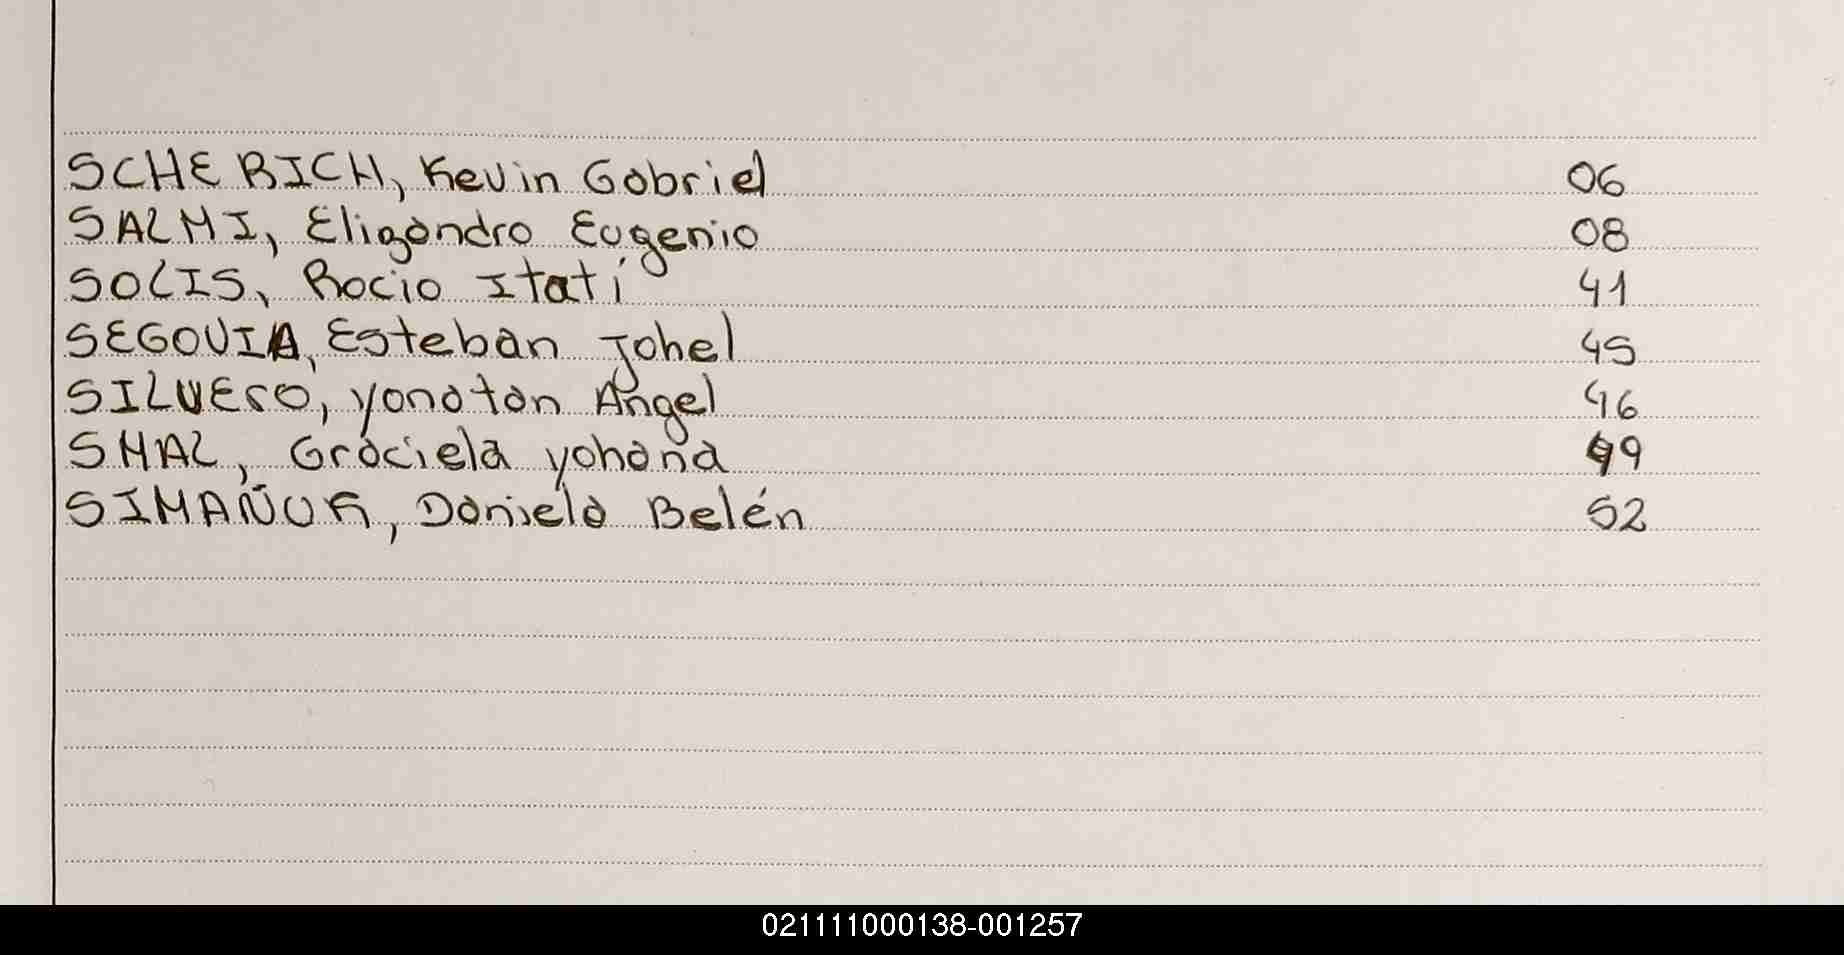 SCHERICH, Kevin Gabriel 06
SALMI, Eligandro Eugenio 08
SOLIS, Rocio Itatí 41
SEGOVIA, Esteban Johel 45
SILVERO, Yonatan Angel 46
SMAL, Graciela Yohana 49
SIMAÑUK, Daniela Belén 52
021111000138-001257